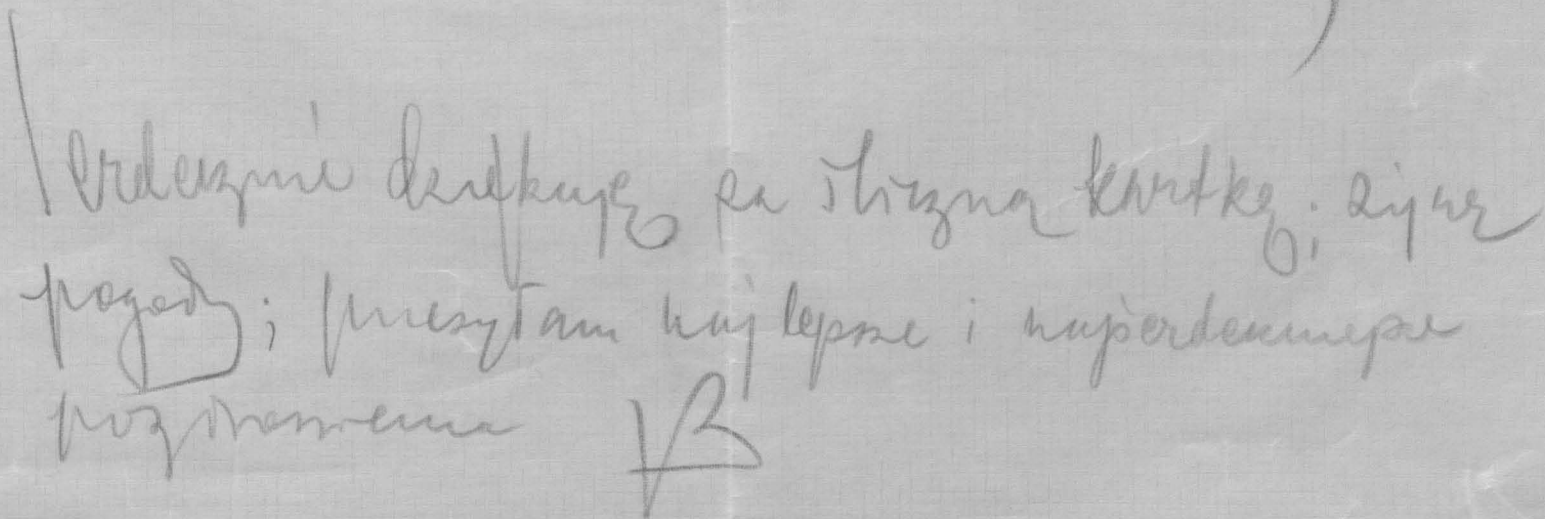 Serdecznie dziękuję za śliczną kartkę; życzę
pogody; przesyłam najlepsze i najserdeczniejsze
pozdrowienia